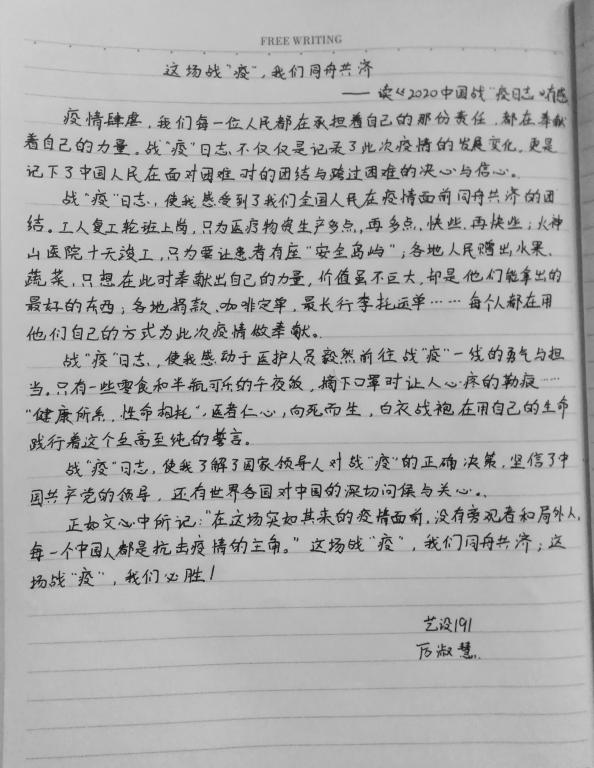 FREE WRITING
这场战“疫”，我们同舟共济
——读《2020中国战“疫日志》有感
疫情肆虐，我们每一位人民都在承担着自己的那份责任，都在奉献
着自己的力量。战“疫”日志不仅仅是记录了此次疫情的发展变化，更是
记下了中国人民在面对困难时的团结与跨过困难的决心与信心。
战“疫”日志，使我感受到了我们全国人民在疫情面前同舟共济的团
结。工人复工轮班上岗，只为医疗物资生产多点，再多点，快些，再快些；火神
山医院十天竣工，只为要让患者有座“安全岛屿”；各地人民赠出水果、
蔬菜，只想在此时奉献出自己的力量，价值虽不巨大，却是他们能拿出的
最好的东西；各地捐款、咖啡定单，最长行李托运单……每个人都在用
他们自己的方式为此次疫情做奉献。
战“疫”日志，使我感动于医护人员毅然前往战“疫”一线的勇气与担
当。只有一些零食和半瓶可乐的午夜饭，摘下口罩时让人心疼的勒痕……
“健康所系，性命相托”，医者仁心，向死而生，白衣战袍在用自己的生命
践行着这个至高至纯的誓言。
战“疫”日志，使我了解了国家领导人对战“疫”的正确决策，坚信了中
国共产党的领导，还有世界各国对中国的深切问候与关心。
正如文心中所记：“在这场突如其来的疫情面前，没有旁观者和局外人，
每一个中国人都是抗击疫情的主角。”这场战“疫”，我们同舟共济；这
场战“疫”，我们必胜！
艺设191
厉淑慧